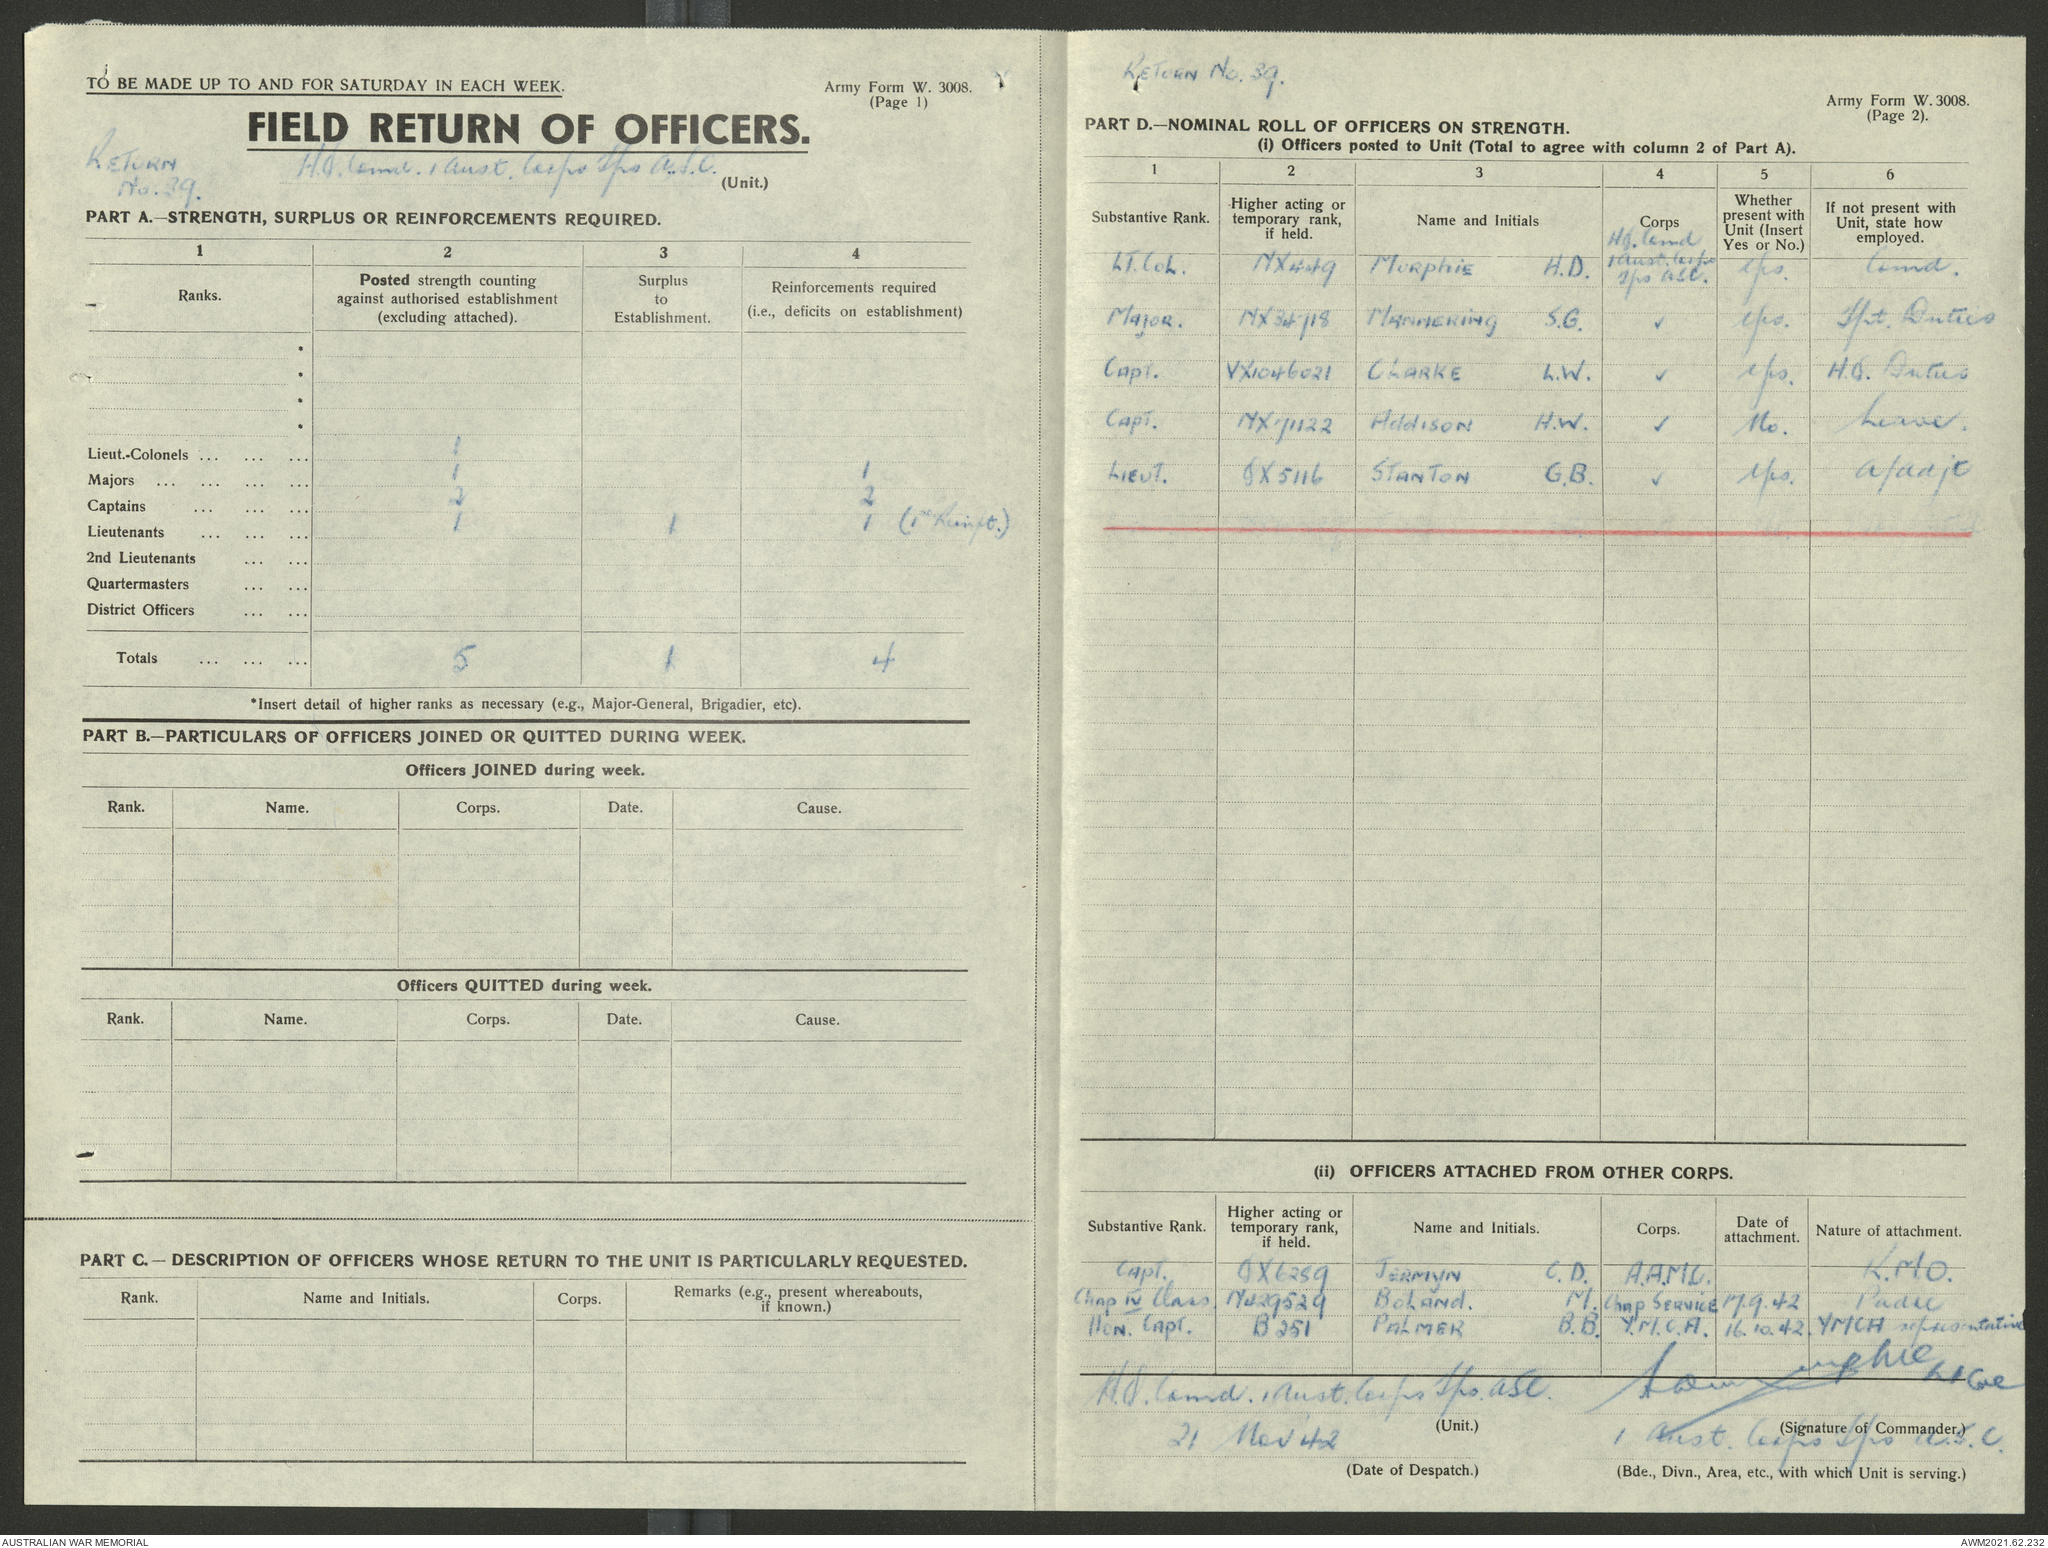 TO BE MADE UP TO AND FOR SATURDAY IN EACH WEEK.
Army Form W. 3008.
(Page 1)
FIELD RETURN OF OFFICERS.
RETURN No. 39.
H.Q. Comd. 1 Aust. Corps Tps A.S.C.
(Unit.)
PART A.—STRENGTH, SURPLUS OR REINFORCEMENTS REQUIRED.
1 2 3 4
Ranks.
Posted strength counting against authorised establishment (excluding attached).
Surplus to Establishment.
Reinforcements required (i.e., deficits on establishment)
*
*
*
*
Lieut.-Colonels ... ... ... 1
Majors ... ... ... ... 1 1
Captains ... ... ... 2 2
Lieutenants ... ... ... 1 1 1 (1st Reinft.)
2nd Lieutenants ... ...
Quartermasters ... ...
District Officers ... ...
Totals ... ... ... 5 1 4
*Insert detail of higher ranks as necessary (e.g., Major-General, Brigadier, etc).
PART B.—PARTICULARS OF OFFICERS JOINED OR QUITTED DURING WEEK.
Officers JOINED during week.
Rank. Name. Corps. Date. Cause.
Officers QUITTED during week.
Rank. Name. Corps. Date. Cause.
PART C.— DESCRIPTION OF OFFICERS WHOSE RETURN TO THE UNIT IS PARTICULARLY REQUESTED.
Rank. Name and Initials. Corps. Remarks (e.g., present whereabouts, if known.)
RETURN No. 39.
Army Form W. 3008.
(Page 2).
PART D.—NOMINAL ROLL OF OFFICERS ON STRENGTH.
(i) Officers posted to Unit (Total to agree with column 2 of Part A).
1 2 3 4 5 6
Substantive Rank.
Higher acting or temporary rank, if held.
Name and Initials
Corps
Whether present with Unit (Insert Yes or No.)
If not present with Unit, state how employed.
LT. COL. NX449 MURPHIE H.D. HQ. Comd 1 Aust. Corps Tps ASC. Yes. Comd.
MAJOR. NX34718 MANNERING S.G. ✓ Yes. Tpt. Duties
CAPT. VX104602 1 CLARKE L.W. ✓ Yes. H.Q. Duties
CAPT. NX71122 ADDISON H.W. ✓ No. Leave.
LIEUT. QX5116 STANTON G.B. ✓ Yes. A/Adjt
(ii) OFFICERS ATTACHED FROM OTHER CORPS.
Substantive Rank.
Higher acting or temporary rank, if held.
Name and Initials.
Corps.
Date of attachment.
Nature of attachment.
CAPT. QX6259 JERMYN C.D. A.A.M.C. R.M.O.
Chap IV Class N429529 BOLAND. M. Chap SERVICE 17.9.42 Padre
HON. CAPT. B251 PALMER B.B. Y.M.C.A. 16.10.42. YMCA representative
H.Q. Comd. 1 Aust. Corps Tps. ASC.
Lt Col
(Unit.)
(Signature of Commander.)
21 Nov 42
1 Aust. Corps Tps A.S.C.
(Date of Despatch.)
(Bde., Divn., Area, etc., with which Unit is serving.)
AUSTRALIAN WAR MEMORIAL
AWM2021.62.232